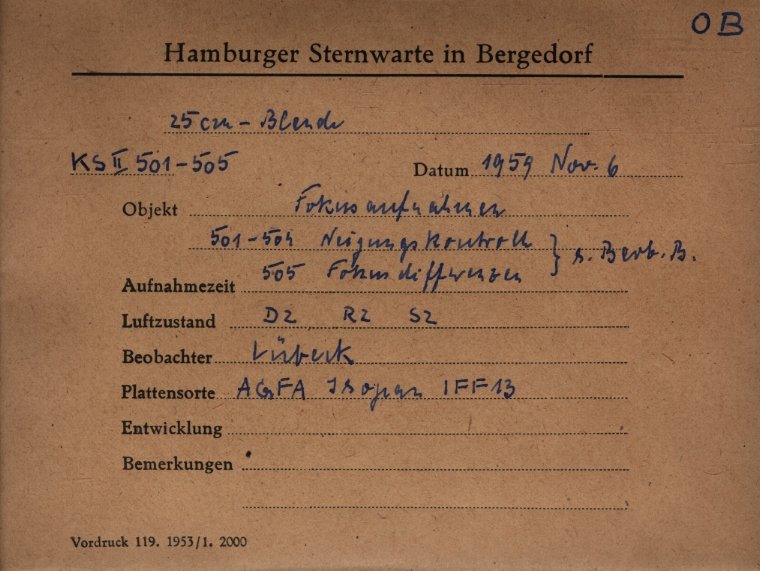 OB
Hamburger Sternwarte in Bergedorf
25cm-Blende
KS II 501-505 Datum 1959 Nov. 6
Objekt Fokusaufnahmen
501-504 Neigungskontrolle } s. Beob. B.
505 Fokusdifferenzen
Aufnahmezeit
Luftzustand D2 R2 S2
Beobachter Lübeck
Plattensorte AGFA Isopan IFF13
Entwicklung
Bemerkungen
Vordruck 119. 1953/1. 2000